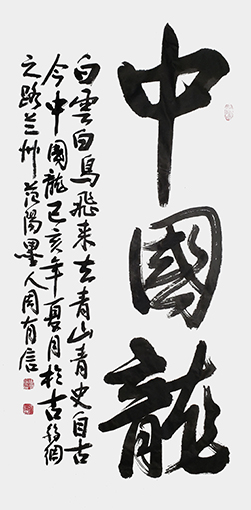 中國龍
白雲白鳥飛来去青山青史自古
今中國龍己亥年夏月於古絲綢
之路兰州范陽墨人周有信